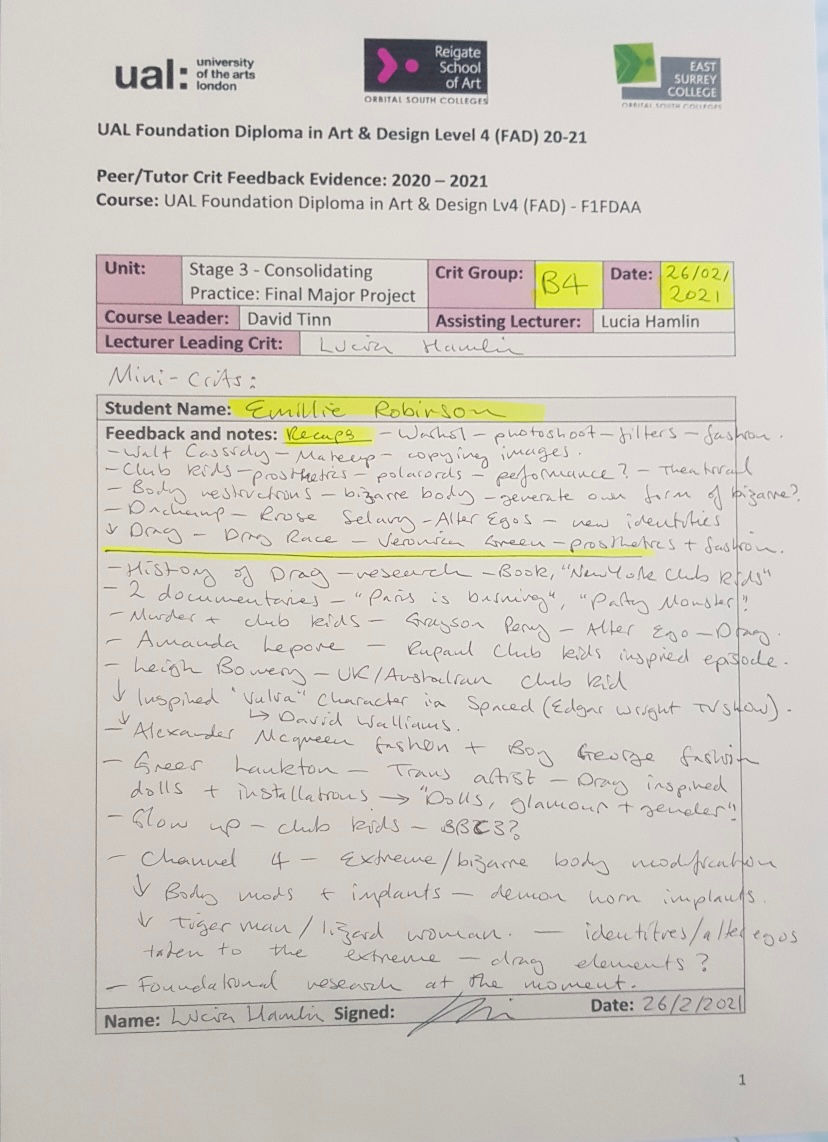 ual: university
of the arts
london
Reigate
School
of Art
ORBITAL SOUTH COLLEGES
EAST
SURREY
COLLEGE
ORBITAL SOUTH COLLEGES
UAL Foundation Diploma in Art & Design Level 4 (FAD) 20-21
Peer/Tutor Crit Feedback Evidence: 2020 – 2021
Course: UAL Foundation Diploma in Art & Design Lv4 (FAD) - F1FDAA
Unit: Stage 3 - Consolidating Practice: Final Major Project Crit Group: B4 Date: 26/02/2021
Course Leader: David Tinn Assisting Lecturer: Lucia Hamlin
Lecturer Leading Crit: Lucia Hamlin
Mini-crits:
Student Name: Emillie Robinson
Feedback and notes: Recaps - Warhol - photoshoot - filters - fashion.
- Walt Cassidy - Makeup - copying images.
- Club kids - prosthetics - polaroids - peformance? - Theatrical
- Body restrictions - bizarre body - generate own form of bizarre?
- Duchamp - Rrose Selavy - Alter Egos - new identities
↓ Drag - Drag Race - Veronica Green - prosthetics + fashion.
- History of Drag - research - Book, "New York Club kids"
- 2 documentaries - "Paris is burning", "Party Monster".
- Murder + club kids - Grayson Perry - Alter Ego - Drag.
- Amanda Lepore - Rupaul Club kids inspired episode.
- Leigh Bowery - UK/Australian club kid
↓ Inspired "Vulva" character in Spaced (Edgar Wright TV show).
↓ ↳ David Walliams.
- Alexander Mcqueen fashion + Boy George fashion
- Greer Lankton - Trans artist - Drag inspired
dolls + installations → "Dolls, glamour + gender"
- Glow up - club kids - BBC3?
- Channel 4 - Extreme/bizarre body modification
↓ Body mods + implants - demon horn implants.
↓ Tiger man/lizard woman. - identities/alter egos
taken to the extreme - drag elements?
- Foundational research at the moment.
Name: Lucia Hamlin Signed: Date: 26/2/2021
1